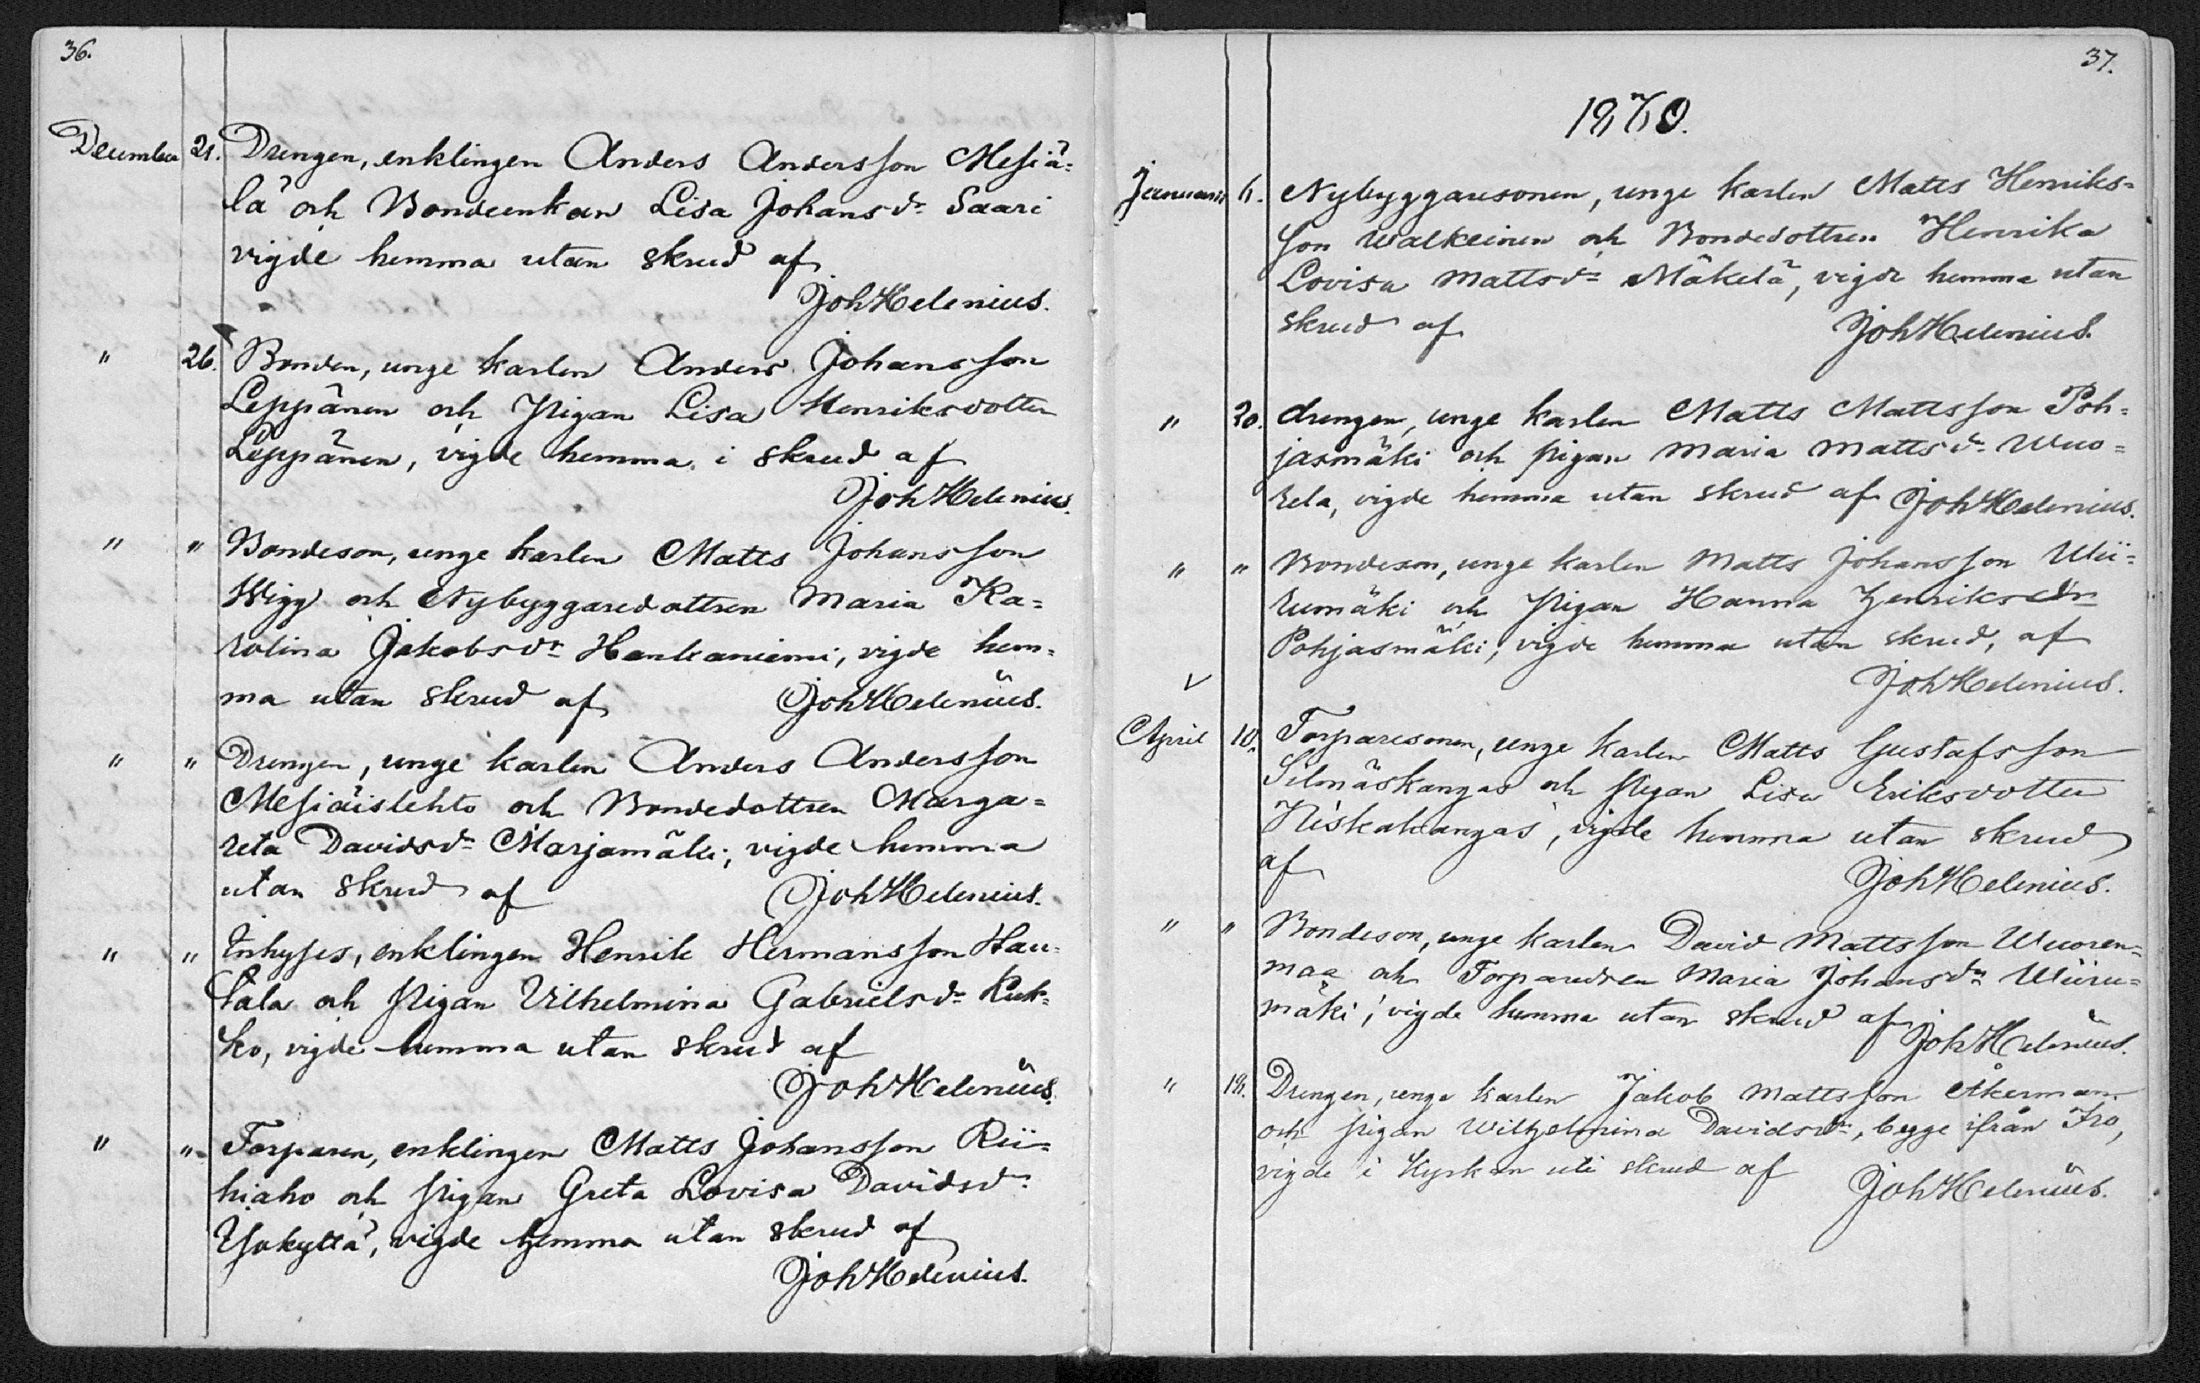 36.
December 21. Drengen, enklingen Anders Andersson Mesiä=
lä och Bondeenkan Lisa Johansdr Saari
vigde hemma utan skrud af
Joh Helenius.
" 26. Bonden, unge karlen Anders Johansson
Leppänen och Pigan Lisa Henriksdotter
Leppänen, vigde hemma i skrud af
Joh Helenius.
" " Bondeson, unge karlen Matts Johansson
Wigg och Nybyggaredottren Maria Ka=
rolina Jakobsdr Hankaniemi, vigde hem=
ma utan skrud af Joh Helenius.
" " Drengen, unge karlen Anders Andersson
Mesiäislehto och Bondedottren Marga=
reta Davidsdr Marjamäki, vigde hemma
utan skrud af Joh Helenius.
" " Inhyses, enklingen Henrik Hermansson Hau=
tala och Pigan Vilhelmina Gabrielsdr Kuk=
ko, vigde hemma utan skrud af
Joh Helenius.
" " Torparen, enklingen Matts Johansson Rii=
hiaho och pigan Greta Lovisa Davidsdr
Yökyttä, vigde hemma utan skrud af
Joh Helenius.
37.
1870.
Januarii 6. Nybyggaresonen, unge karlen Matts Henriks=
son Walkeinen och Bondedottren Henrika
Lovisa Mattsdr Mäkelä, vigde hemma utan
skrud af Joh Helenius.
" 20. drengen, unge karlen Matts Mattsson Poh=
jasmäki och pigan Maria Mattsdr Wuo=
rela, vigde hemma utan skrud af Joh Helenius.
" " Bondeson, unge karlen Matts Johansson Wii=
rumäki och Pigan Hanna Henriksdr
Pohjasmäki, vigde hemma utan skrud, af
Joh Helenius.
April 10. Torparesonen, unge karlen Matts Gustafsson
Silmäskangas och Pigan Lisa Eriksdotter
Hiskakangas, vigde hemma utan skrud
af Joh Helenius.
" " Bondeson, unge karlen David Mattsson Wuoren=
maa och Torparedren Maria Johansdr Wiiru=
mäki, vigde hemma utan skrud af Joh Helenius.
" 18. Drengen, unge karlen Jakob Mattsson Åkerman
och pigan Wilhelmina Davidsdr, begge ifrån Iro,
vigde i Kyrkan uti skrud af Joh Helenius.